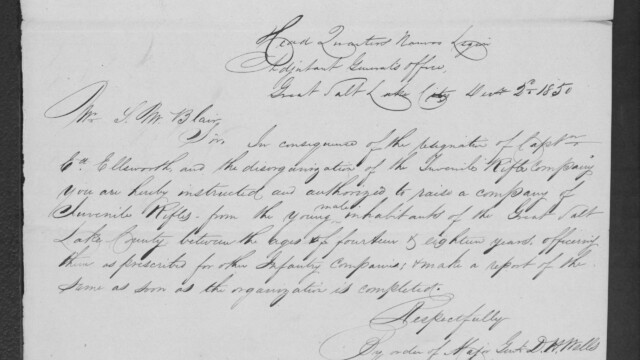 Head Quarters Nauvoo Legion
Adjutant Generals Office,
Great Salt Lake City Decr 2d 1850
Mr S. M. Blair,
Sir. In consequence of the resignation of Captn
Ed. Ellsworth, and the disorganization of the Juvenile Rifle Company
you are hereby instructed and authorized to raise a company of
Juvenile Rifles. from the young male inhabitants of the Great Salt
Lake County between the ages of fourteen & eighteen years. officering
them as prescribed for other Infantry companies; & make a report of the
same as soon as the organization is completed.
Respectfully
By order of Major Genl. D. H. Wells